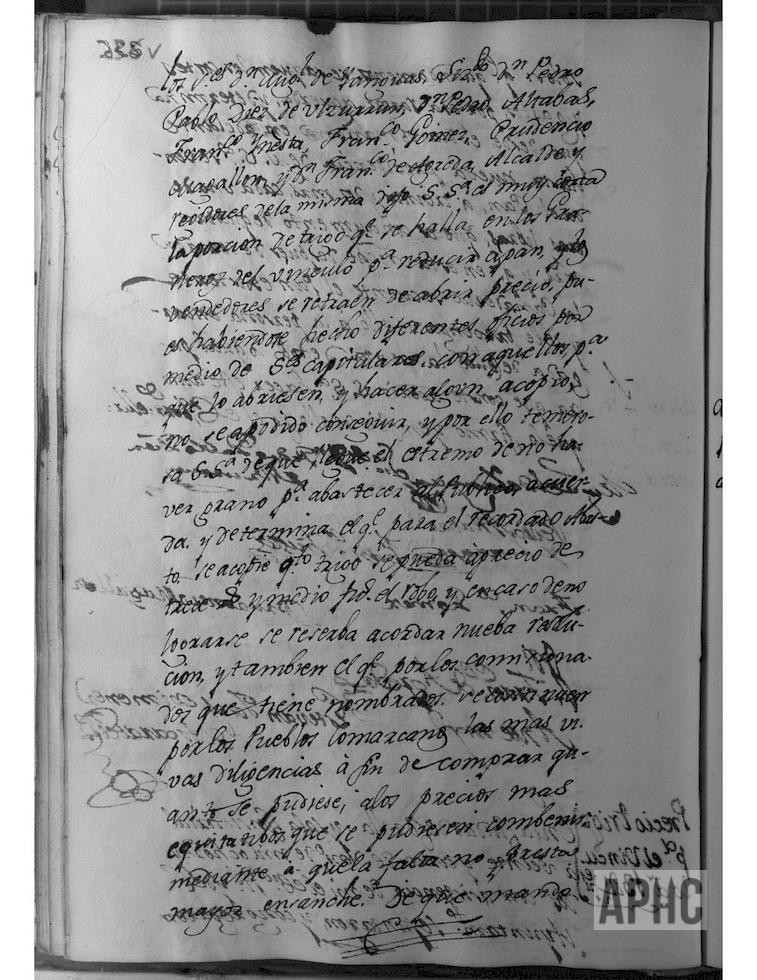 336 v
los S.es d.n Mig.l de Vanovas, Sxto d.n Pedro
Pablo Diez de Ulzurrun, d.n Pedro Altabas,
Fran.co Ynesta, Fran.co Gomez, Prudencio
Magallon, y d.n Fran.co de Agreda, Alcalde y
rexidores de la misma dijo S. S.a es muy corta
la porcion de trigo q.e se halla en los Gra-
neros del vinculo p.a reducir á pan, y los
vendedores se retraen de abrir precio, pu-
es habiendose hecho diferentes oficios por
medio de S.es capitulares con aquellos p.a
que lo abriesen, y hacer algun acopio,
no se a podido conseguir, y por ello temero-
sa S. S.a de que llegue el extremo de no ha-
ver grano p.a abastecer al publico, acuer-
da y determina el q.e para el recordado Abas-
to, se acopie q.to trigo se pueda á precio de
trece y medio el robo, y en caso de no
lograrse se reserba acordar nueba resolu-
cion, y tambien el q.e por los comisiona-
dos que tiene nombrados se continuen
por los Pueblos Comarcanos las mas vi-
vas diligencias á fin de comprar qu-
anto se pudiese, a los precios mas
equitatibos que se pudieren combenir
mediante á que la falta no presta
mayor ensanche. De que mandó
Precio trigo
p.a el Vincu-
APHC